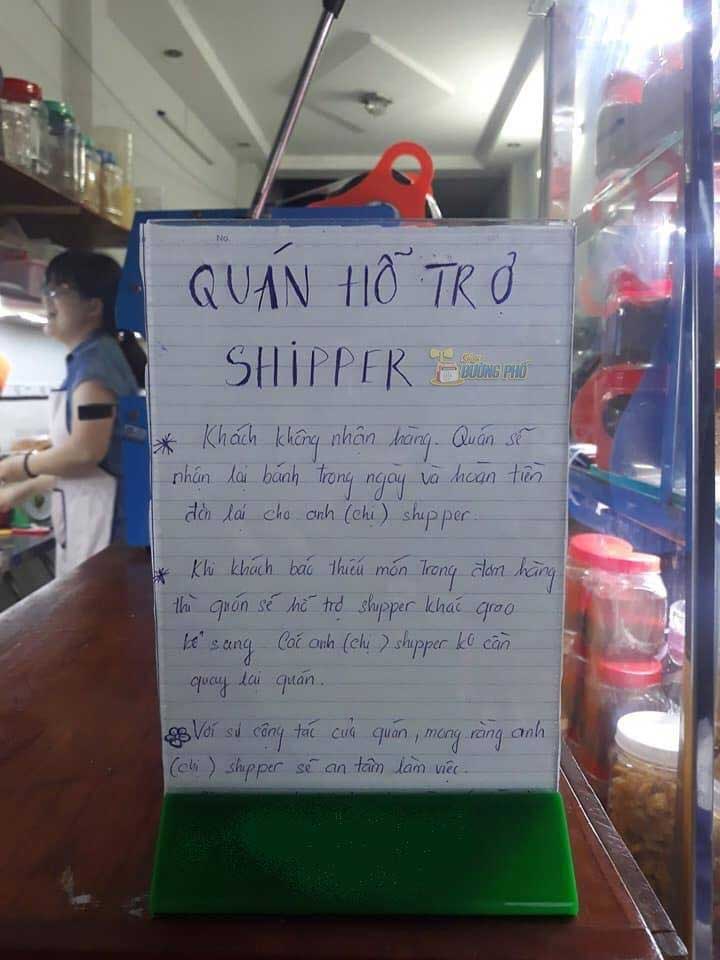 No.
QUÁN HỖ TRỢ
SHIPPER
BƯỚNG PHỐ
* Khách không nhận hàng. Quán sẽ
nhận lại bánh trong ngày và hoàn tiền
đơn lại cho anh (chị) shipper.
* Khi khách báo thiếu món trong đơn hàng
thì quán sẽ hỗ trợ shipper khác giao
bổ sang. Các anh (chị) shipper ko cần
quay lại quán.
Với sự cộng tác của quán, mong rằng anh
(chị) shipper sẽ an tâm làm việc.